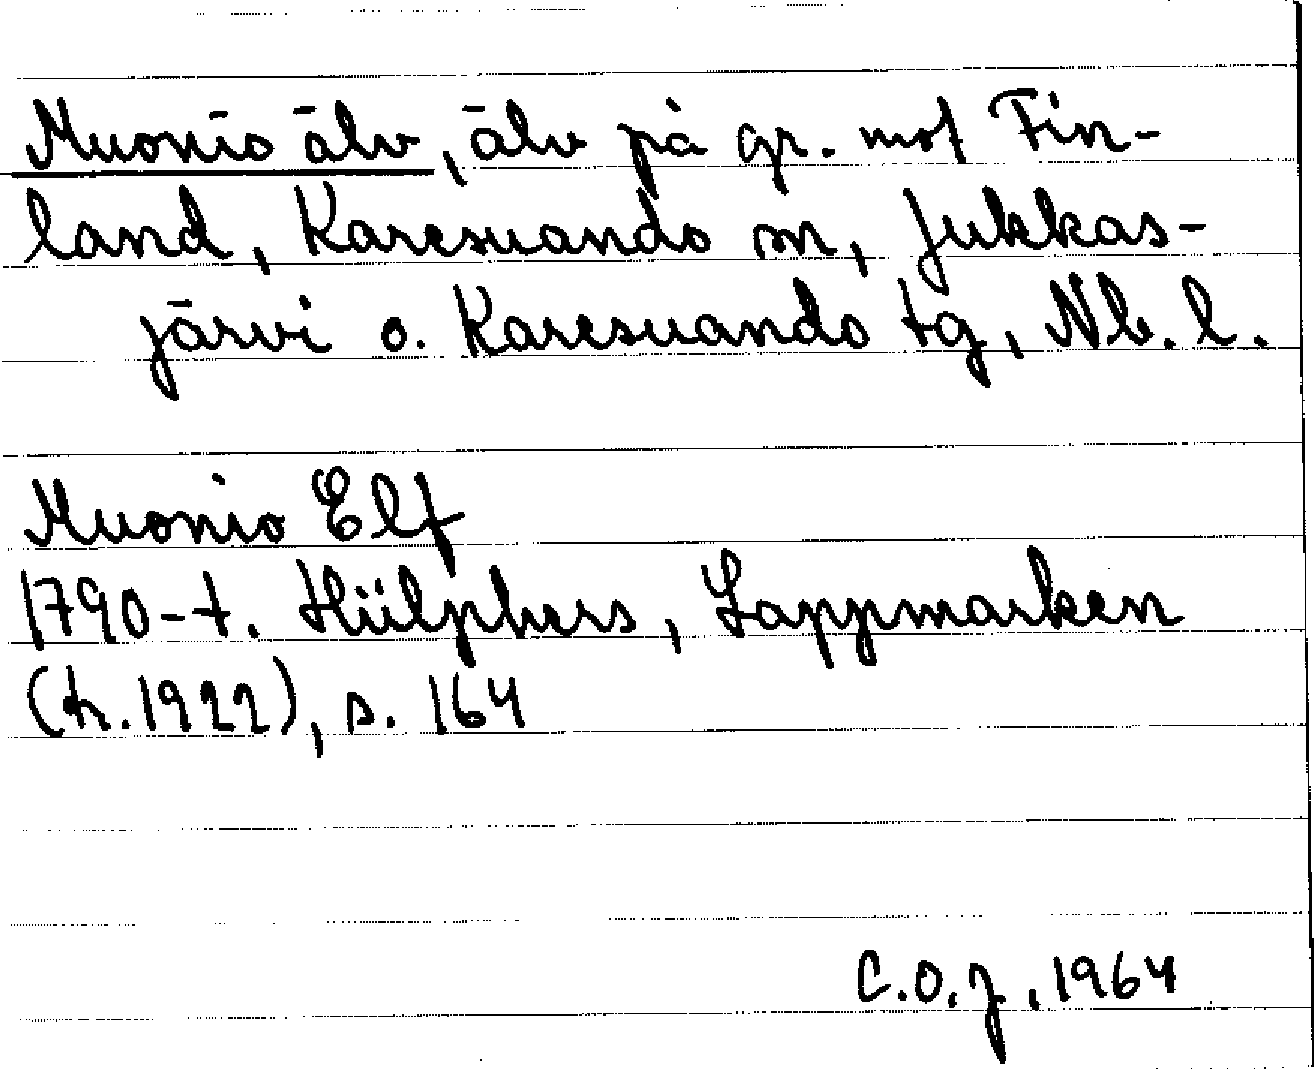 Muonio älv, älv på gr. mot Fin-
land, Karesuando sn, Jukkas-
järvi o. Karesuando tg, Nb. l.
Muonio Elf
1790-t. Hülphers, Lappmarken
(tr. 1922), s. 164
C.O.J. 1964